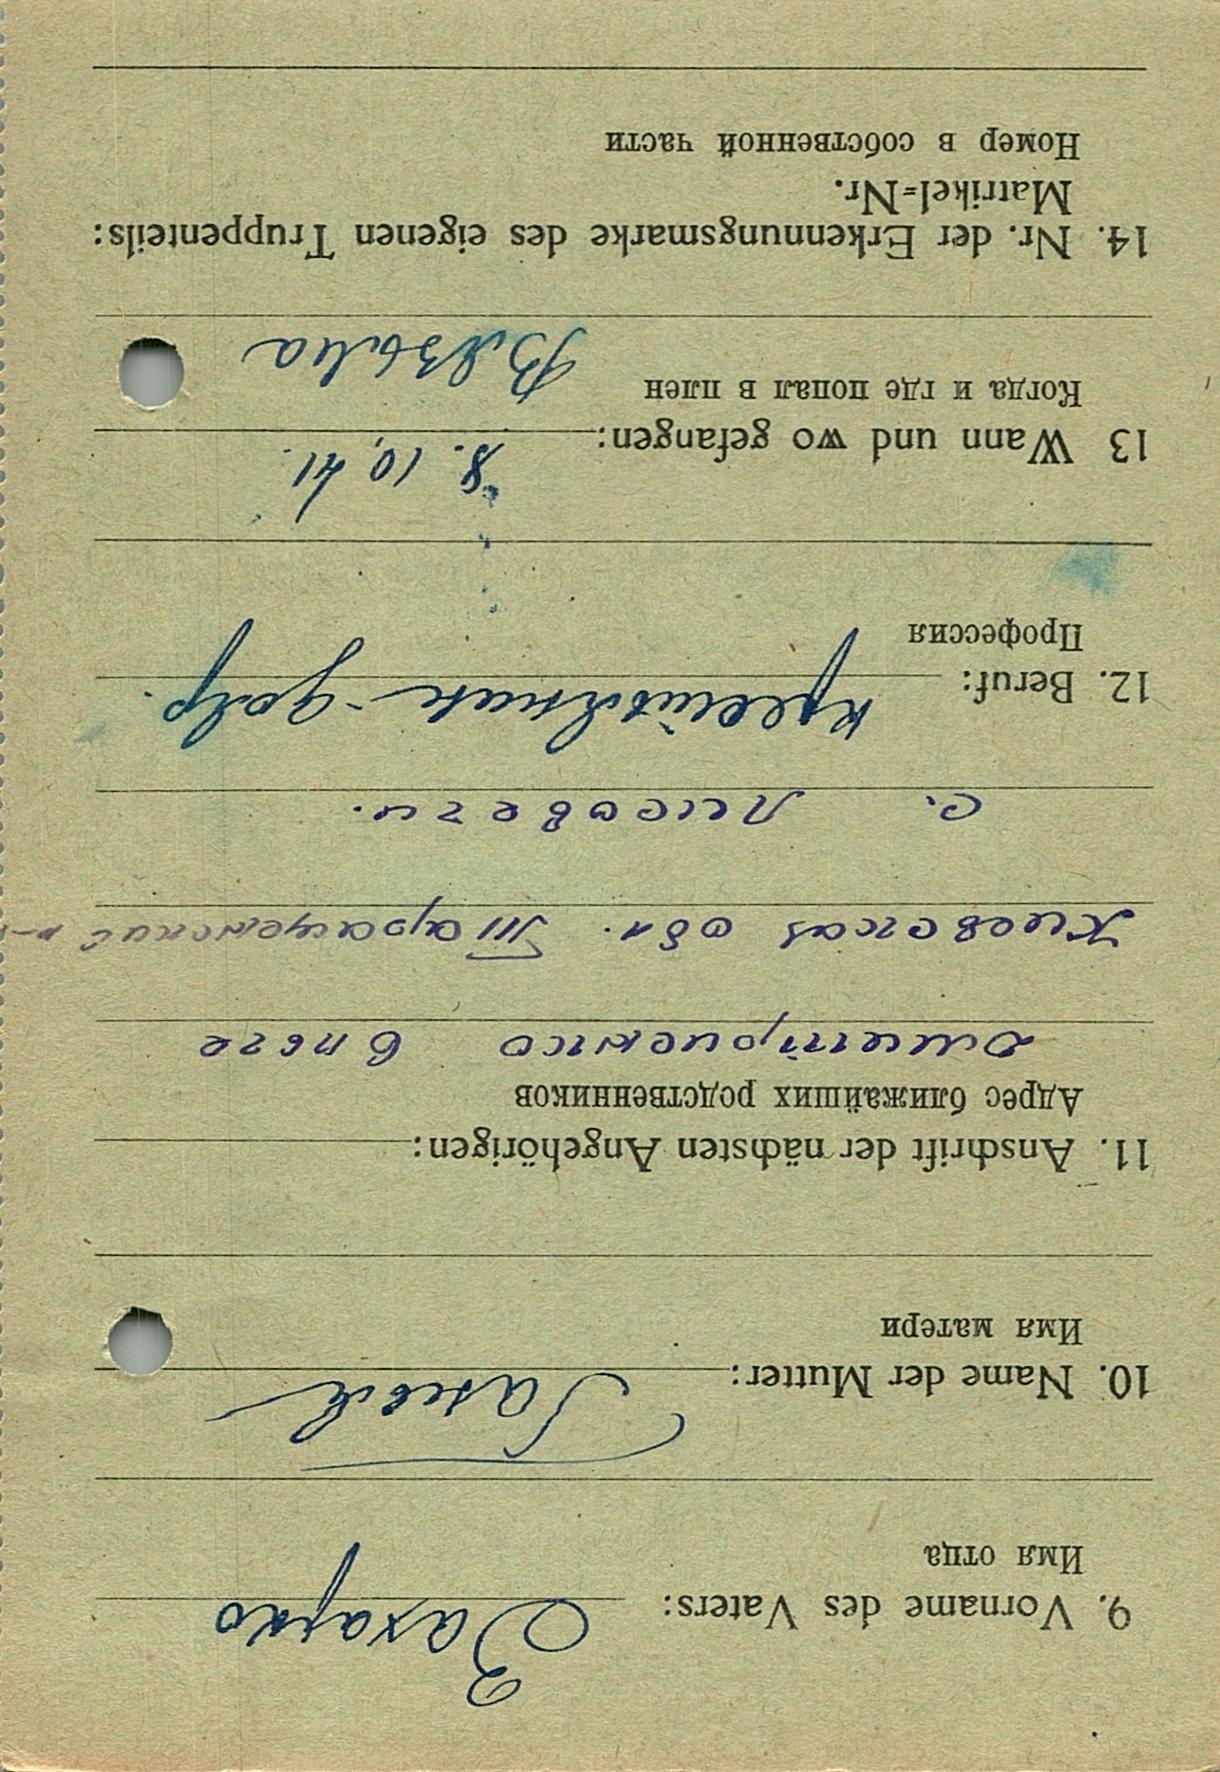 9. Vorname des Vaters:
Имя отца
Захарко
10. Name der Mutter:
Имя матери
Ганна
11. Anschrift der nächsten Angehörigen:
Адрес ближайших родственников
Киевская обл. Таращенский р-
с. Лисовечи.
12. Beruf:
Профессия
13 Wann und wo gefangen:
8. 10. 41.
Когда и где попал в плен
Вязьма
14. Nr. der Erkennungsmarke des eigenen Truppenteils:
Matrikel=Nr.
Номер в собственной части